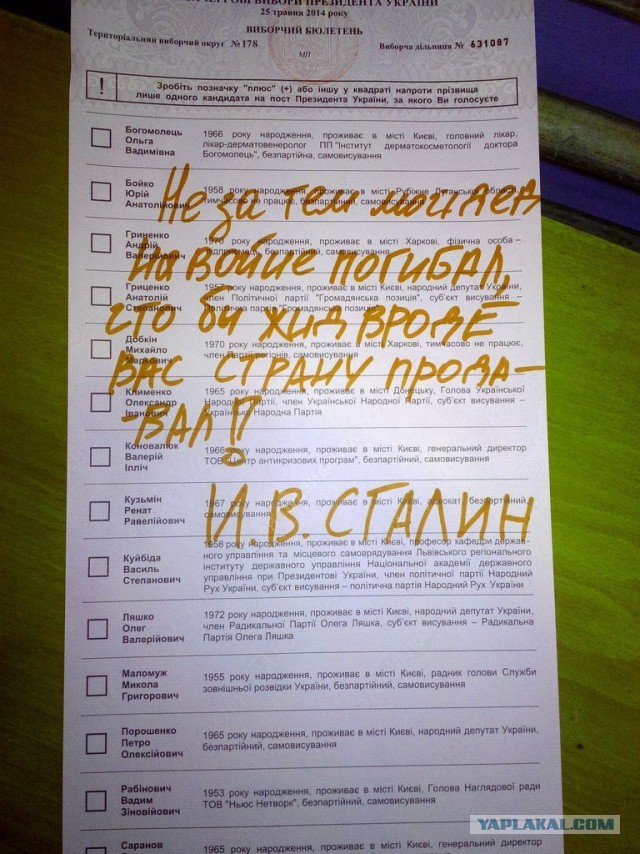 ЧЕРГОВІ ВИБОРИ ПРЕЗИДЕНТА УКРАЇНИ
25 травня 2014 року
ВИБОРЧИЙ БЮЛЕТЕНЬ
Територіальний виборчий округ №178
МП
Виборча дільниця № 631087
!
Зробіть позначку "плюс" (+) або іншу у квадраті напроти прізвища
лише одного кандидата на пост Президента України, за якого Ви голосуєте
Богомолець
Ольга
Вадимівна
1966 року народження, проживає в місті Києві, головний лікар,
лікар-дерматовенеролог ПП "Інститут дерматокосметології доктора
Богомолець", безпартійна, самовисування
Бойко
Юрій
Анатолійович
1958 року народження, проживає в місті Рубіжне Луганської області,
тимчасово не працює, безпартійний, самовисування
Гриненко
Андрій
Валерійович
1970 року народження, проживає в місті Харкові, фізична особа –
підприємець, безпартійний, самовисування
Гриценко
Анатолій
Степанович
1957 року народження, проживає в місті Києві, народний депутат України,
член Політичної партії "Громадянська позиція", суб'єкт висування –
Політична партія "Громадянська позиція"
Добкін
Михайло
Маркович
1970 року народження, проживає в місті Харкові, тимчасово не працює,
член Партії регіонів, самовисування
Клименко
Олександр
Іванович
1965 року народження, проживає в місті Донецьку, Голова Української
Народної Партії, член Української Народної Партії, суб'єкт висування –
Українська Народна Партія
Коновалюк
Валерій
Ілліч
1966 року народження, проживає в місті Києві, генеральний директор
ТОВ "Центр антикризових програм", безпартійний, самовисування
Кузьмін
Ренат
Равелійович
1967 року народження, проживає в місті Києві, адвокат, безпартійний,
самовисування
Куйбіда
Василь
Степанович
1958 року народження, проживає в місті Києві, професор кафедри держав-
ного управління та місцевого самоврядування Львівського регіонального
інституту державного управління Національної академії державного
управління при Президентові України, член політичної партії Народний
Рух України, суб'єкт висування – політична партія Народний Рух України
Ляшко
Олег
Валерійович
1972 року народження, проживає в місті Києві, народний депутат України,
член Радикальної Партії Олега Ляшка, суб'єкт висування – Радикальна
Партія Олега Ляшка
Маломуж
Микола
Григорович
1955 року народження, проживає в місті Києві, радник голови Служби
зовнішньої розвідки України, безпартійний, самовисування
Порошенко
Петро
Олексійович
1965 року народження, проживає в місті Києві, народний депутат України,
безпартійний, самовисування
Рабінович
Вадим
Зіновійович
1953 року народження, проживає в місті Києві, Голова Наглядової ради
ТОВ "Ньюс Нетворк", безпартійний, самовисування
Саранов
1965 року народження, проживає в місті Києві, генеральний директор
Не за тем мой дед
на войне погибал,
что бы жид вроде
вас страну прода-
-вал!
И. В. СТАЛИН
YAPLAKAL.COM